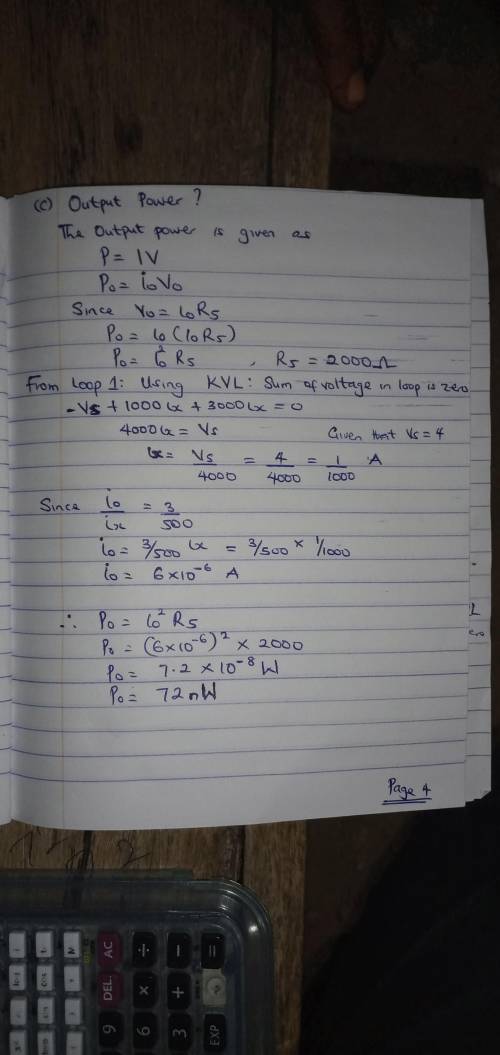 (c) Output Power ?
The Output power is given as
P = IV
Po = ioVo
Since Vo = ioR5
Po = io (ioR5)
Po = io² R5 , R5 = 2000Ω
From Loop 1: Using KVL: Sum of voltage in loop is zero
-Vs + 1000ix + 3000ix = 0
4000ix = Vs Given that Vs = 4
ix = Vs/4000 = 4/4000 = 1/1000 A
Since io/ix = 3/500
io = 3/500 ix = 3/500 × 1/1000
io = 6×10⁻⁶ A
∴ Po = io² R5
Po = (6×10⁻⁶)² × 2000
Po = 7.2 × 10⁻⁸ W
Po = 72nW
Page 4
AC ÷ - =
DEL × +
9 6 3 EXP